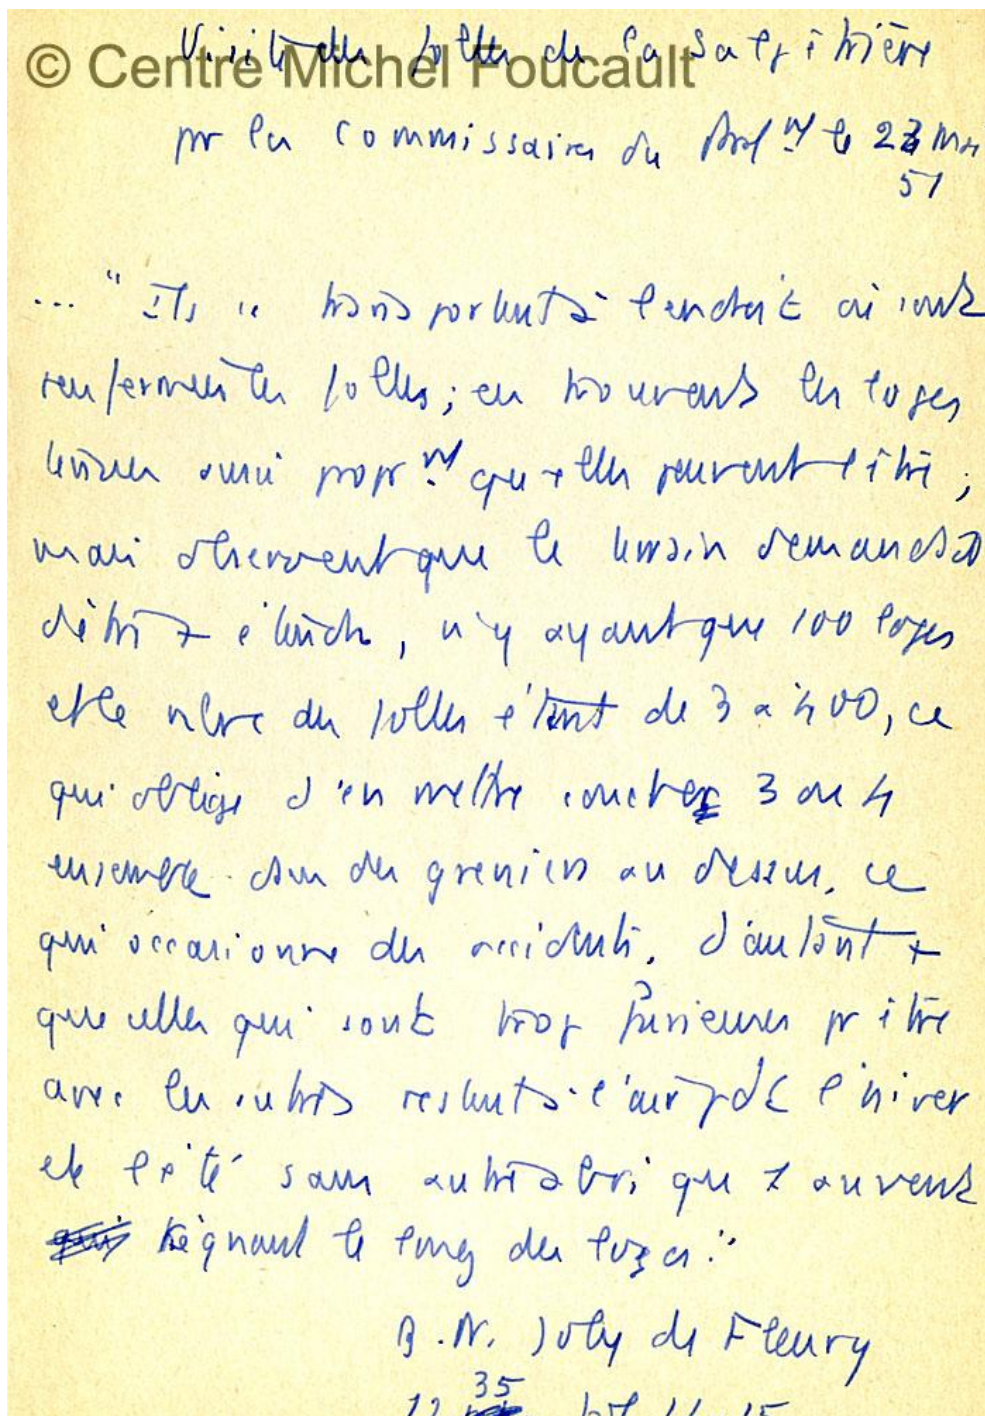 © Centre Michel Foucault
Visite des folles de la Salpêtrière
pr les commissaires du Parlnt le 22 Mai
51
... " Ils se transportent à l'endroit où sont
renfermées les folles ; en trouvent les loges
tenues aussi proprnt qu'elles peuvent l'être ;
mais observent que le terrain demanderait
d'être + étendu, n'y ayant que 100 loges
et le nbre des folles étant de 3 à 400, ce
qui oblige d'en mettre coucher 3 ou 4
ensemble dans des greniers au dessus, ce
qui occasionne des accidents, d'autant +
que celles qui sont trop furieuses pr être
avec les autres restent à l'air pdt l'hiver
et l'été sans autre abri que 1 auvent
régnant le long des loges."
B.N. Joly de Fleury
35